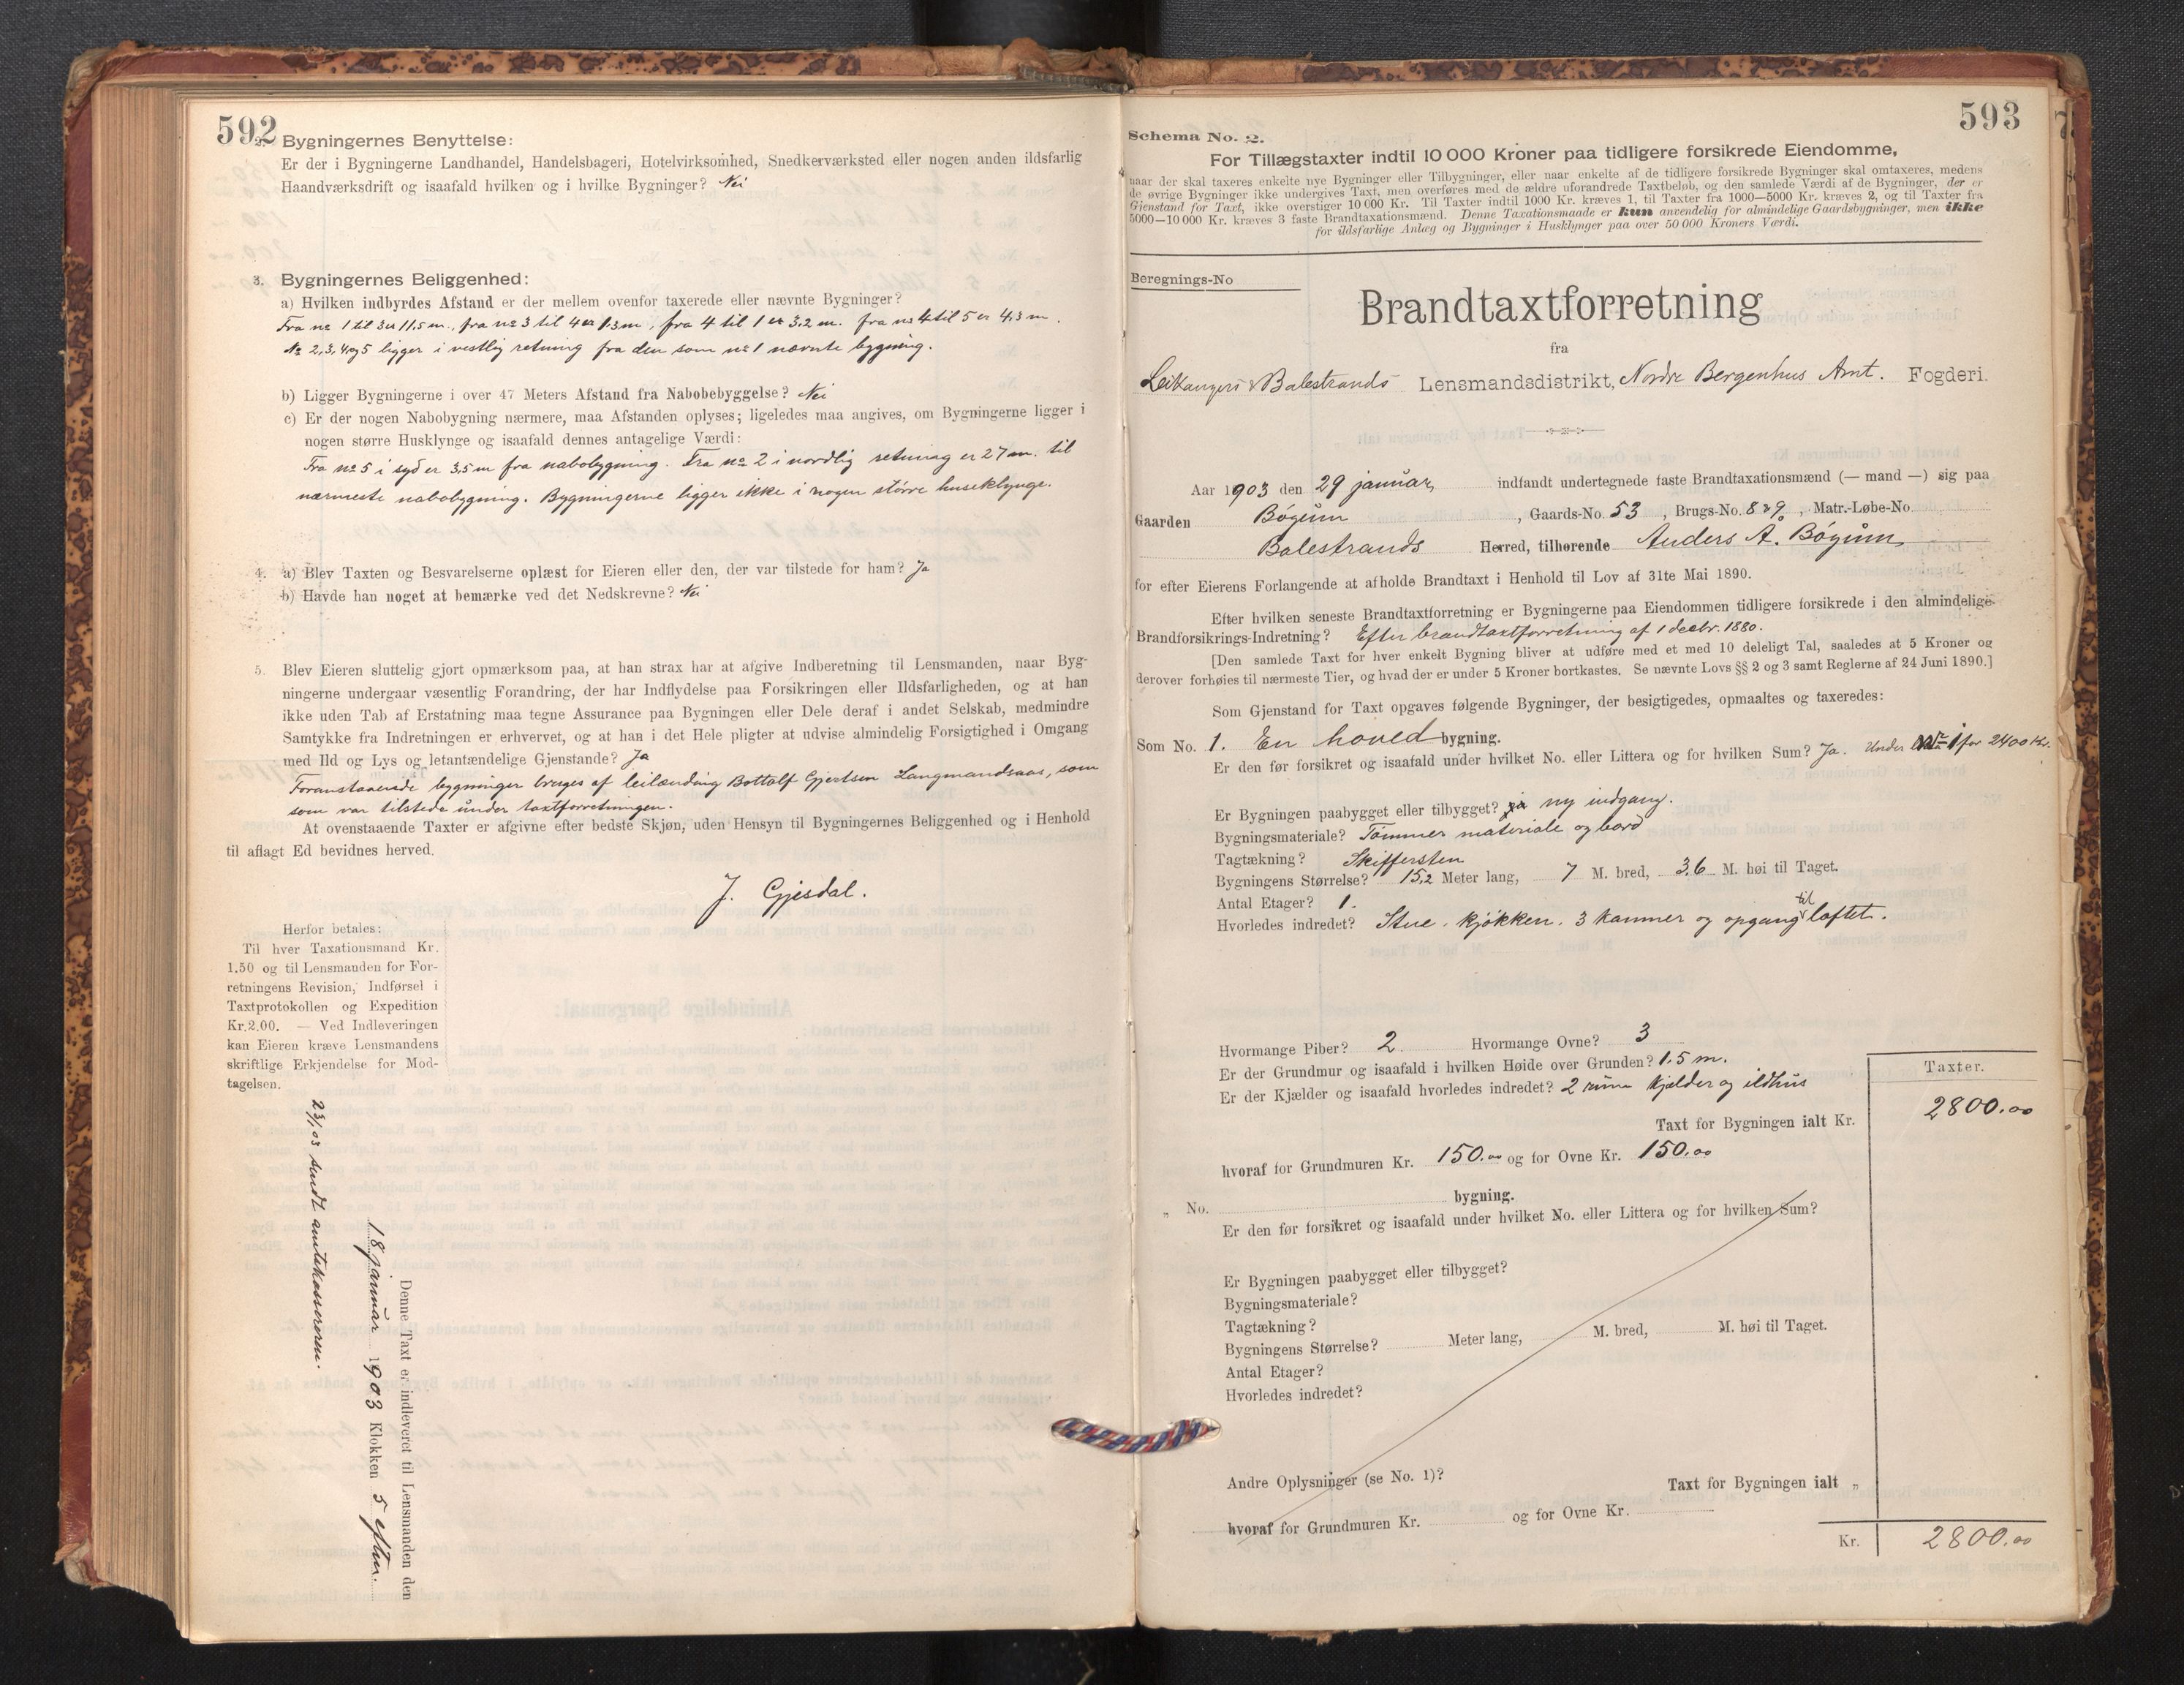 592
2. Bygningernes Benyttelse:
Er der i Bygningerne Landhandel, Handelsbageri, Hotelvirksomhed, Snedkerværksted eller nogen anden ildsfarlig
Haandværksdrift og isaafald hvilken og i hvilke Bygninger? Nei
3. Bygningernes Beliggenhed:
a) Hvilken indbyrdes Afstand er der mellem ovenfor taxerede eller nævnte Bygninger?
Fra no 1 til 3 er 11,5 m., fra no 3 til 4 er 1.3 m, fra 4 til 1 er 3,2 m. fra no 4 til 5 er 4,3 m.
No 2, 3, 4 og 5 ligger i vestlig retning fra den som no 1 nævnte bygning.
b) Ligger Bygningerne i over 47 Meters Afstand fra Nabobebyggelse? Nei
c) Er der nogen Nabobygning nærmere, maa Afstanden oplyses; ligeledes maa angives, om Bygningerne ligger i
nogen større Husklynge og isaafald dennes antagelige Værdi:
Fra no 5 i syd er 3,5 m fra nabobygning. Fra no 2 i nordlig retning er 27 m. til
nærmeste nabobygning. Bygningerne ligger ikke i nogen større huseklynge.
4. a) Blev Taxten og Besvarelserne oplæst for Eieren eller den, der var tilstede for ham? Ja
b) Havde han noget at bemærke ved det Nedskrevne? Nei
5. Blev Eieren sluttelig gjort opmærksom paa, at han strax har at afgive Indberetning til Lensmanden, naar Byg-
ningerne undergaar væsentlig Forandring, der har Indflydelse paa Forsikringen eller Ildsfarligheden, og at han
ikke uden Tab af Erstatning maa tegne Assurance paa Bygningen eller Dele deraf i andet Selskab, medmindre
Samtykke fra Indretningen er erhvervet, og at han i det Hele pligter at udvise almindelig Forsigtighed i Omgang
med Ild og Lys og letantændelige Gjenstande? Ja
Foranstaaende bygninger bruges af leilænding Bottolf Gjertsen Langmandsaas, som
som var tilstede under taxtforretningen.
At ovenstaaende Taxter er afgivne efter bedste Skjøn, uden Hensyn til Bygningernes Beliggenhed og i Henhold
til aflagt Ed bevidnes herved.
J. Gjesdal.
Herfor betales:
Til hver Taxationsmand Kr.
1.50 og til Lensmanden for For-
retningens Revision, Indførsel i
Taxtprotokollen og Expedition
Kr. 2.00. — Ved Indleveringen
kan Eieren kræve Lensmandens
skriftlige Erkjendelse for Mod-
tagelsen.
Denne Taxt er indleveret til Lensmanden den
18 januar 1903 Klokken 5 eftm.
23/1 03 sendt amtskassereren.
593
Schema No. 2.
For Tillægstaxter indtil 10 000 Kroner paa tidligere forsikrede Eiendomme,
naar der skal taxeres enkelte nye Bygninger eller Tilbygninger, eller naar enkelte af de tidligere forsikrede Bygninger skal omtaxeres, medens
de øvrige Bygninger ikke undergives Taxt, men overføres med de ældre uforandrede Taxtbeløb, og den samlede Værdi af de Bygninger, der er
Gjenstand for Taxt, ikke overstiger 10 000 Kr. Til Taxter indtil 1000 Kr. kræves 1, til Taxter fra 1000—5000 Kr. kræves 2, og til Taxter fra
5000—10 000 Kr. kræves 3 faste Brandtaxationsmænd. Denne Taxationsmaade er kun anvendelig for almindelige Gaardsbygninger, men ikke
for ildsfarlige Anlæg og Bygninger i Husklynger paa over 50 000 Kroners Værdi.
Beregnings-No
Brandtaxtforretning
fra
Leikangers & Balestrands Lensmandsdistrikt, Nordre Bergenhus Amt. Fogderi.
Aar 1903 den 29 januar, indfandt undertegnede faste Brandtaxationsmænd (— mand —) sig paa
Gaarden Bøgum, Gaards-No. 53, Brugs-No. 8 & 9, Matr.-Løbe-No
Balestrands Herred, tilhørende Anders A. Bøgum
for efter Eierens Forlangende at afholde Brandtaxt i Henhold til Lov af 31te Mai 1890.
Efter hvilken seneste Brandtaxtforretning er Bygningerne paa Eiendommen tidligere forsikrede i den almindelige
Brandforsikrings-Indretning? Efter brandtaxtforretning af 1 decbr. 1880.
[Den samlede Taxt for hver enkelt Bygning bliver at udføre med et med 10 deleligt Tal, saaledes at 5 Kroner og
derover forhøies til nærmeste Tier, og hvad der er under 5 Kroner bortkastes. Se nævnte Lovs §§ 2 og 3 samt Reglerne af 24 Juni 1890.]
Som Gjenstand for Taxt opgaves følgende Bygninger, der besigtigedes, opmaaltes og taxeredes:
Som No. 1. En hovedbygning.
Er den før forsikret og isaafald under hvilket No. eller Littera og for hvilken Sum? Ja. Under No 1 for 2400 Kr.
Er Bygningen paabygget eller tilbygget? ja ny indgang.
Bygningsmateriale? Tømmer materiale og bord
Tagtækning? Skiffersten
Bygningens Størrelse? 15,2 Meter lang, 7 M. bred, 3,6 M. høi til Taget.
Antal Etager? 1.
Hvorledes indredet? Stue, kjøkken, 3 kammer og opgang til loftet.
Hvormange Piber? 2 Hvormange Ovne? 3
Er der Grundmur og isaafald i hvilken Høide over Grunden? 1,5 m.
Er der Kjælder og isaafald hvorledes indredet? 2 rum kjælder og ildhus
Taxter.
Taxt for Bygningen ialt Kr. 2800.00
hvoraf for Grundmuren Kr. 150.00 og for Ovne Kr. 150.00
„ No. bygning.
Er den før forsikret og isaafald under hvilket No. eller Littera og for hvilken Sum?
Er Bygningen paabygget eller tilbygget?
Bygningsmateriale?
Tagtækning?
Bygningens Størrelse? Meter lang, M. bred, M. høi til Taget.
Antal Etager?
Hvorledes indredet?
Andre Oplysninger (se No. 1)?
Taxt for Bygningen ialt „
hvoraf for Grundmuren Kr. og for Ovne Kr.
Kr. 2800.00